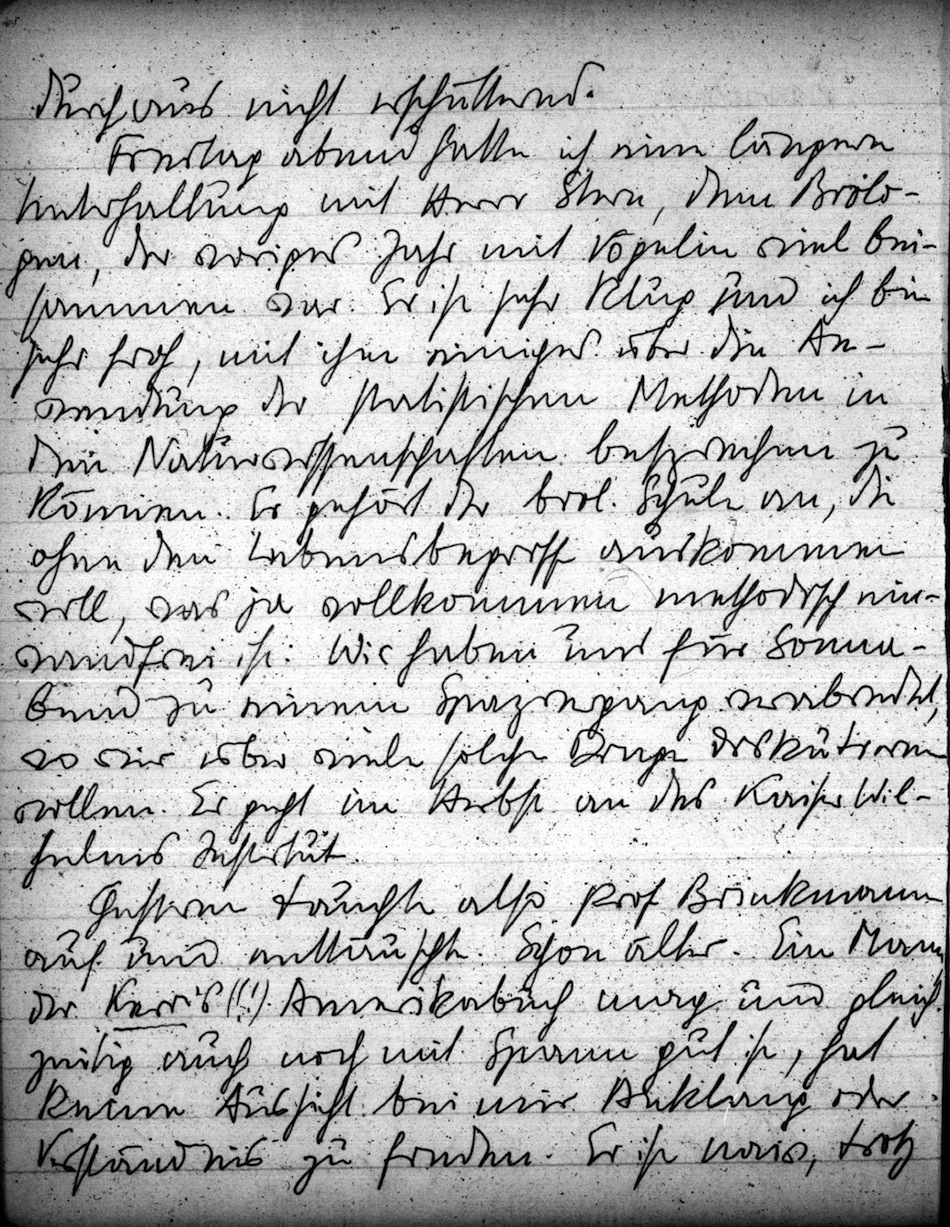 durchaus nicht erschütternd.
Freitag abend hatte ich eine längere
Unterhaltung mit Herr Stern, dem Biolo-
gen, der voriges Jahr mit Vögelin viel bei-
sammen war. Er ist sehr klug und ich bin
sehr froh, mit ihm einiges über die An-
wendung der statistischen Methoden in
den Naturwissenschaften besprechen zu
können. Er gehört der biol. Schule an, die
ohne den Lebensbegriff auskommen
will, was ja vollkommen methodisch ein-
wandfrei ist. Wir haben uns für Sonna-
bend zu einem Spaziergang verabredet,
wo wir über viele solche Dinge diskutieren
wollen. Er geht im Herbst an das Kaiser Wil-
helms Institut.
Gestern tauchte also Prof Brinkmann
auf und enttäuschte. Schon älter. Ein Mann
der Kerr's (!!) Amerikabuch mag und gleich
zeitig auch noch mit Spann gut ist, hat
keine Aussicht bei mir Anklang oder
Verständnis zu finden. Er ist naiv, trotz